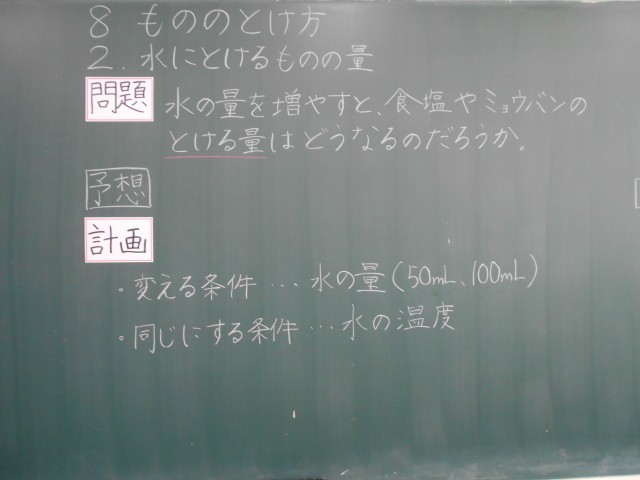 8 もののとけ方
2. 水にとけるものの量
問題 水の量を増やすと、食塩やミョウバンの
とける量はどうなるのだろうか。
予想
計画
・変える条件 … 水の量(50mL、100mL)
・同じにする条件 … 水の温度